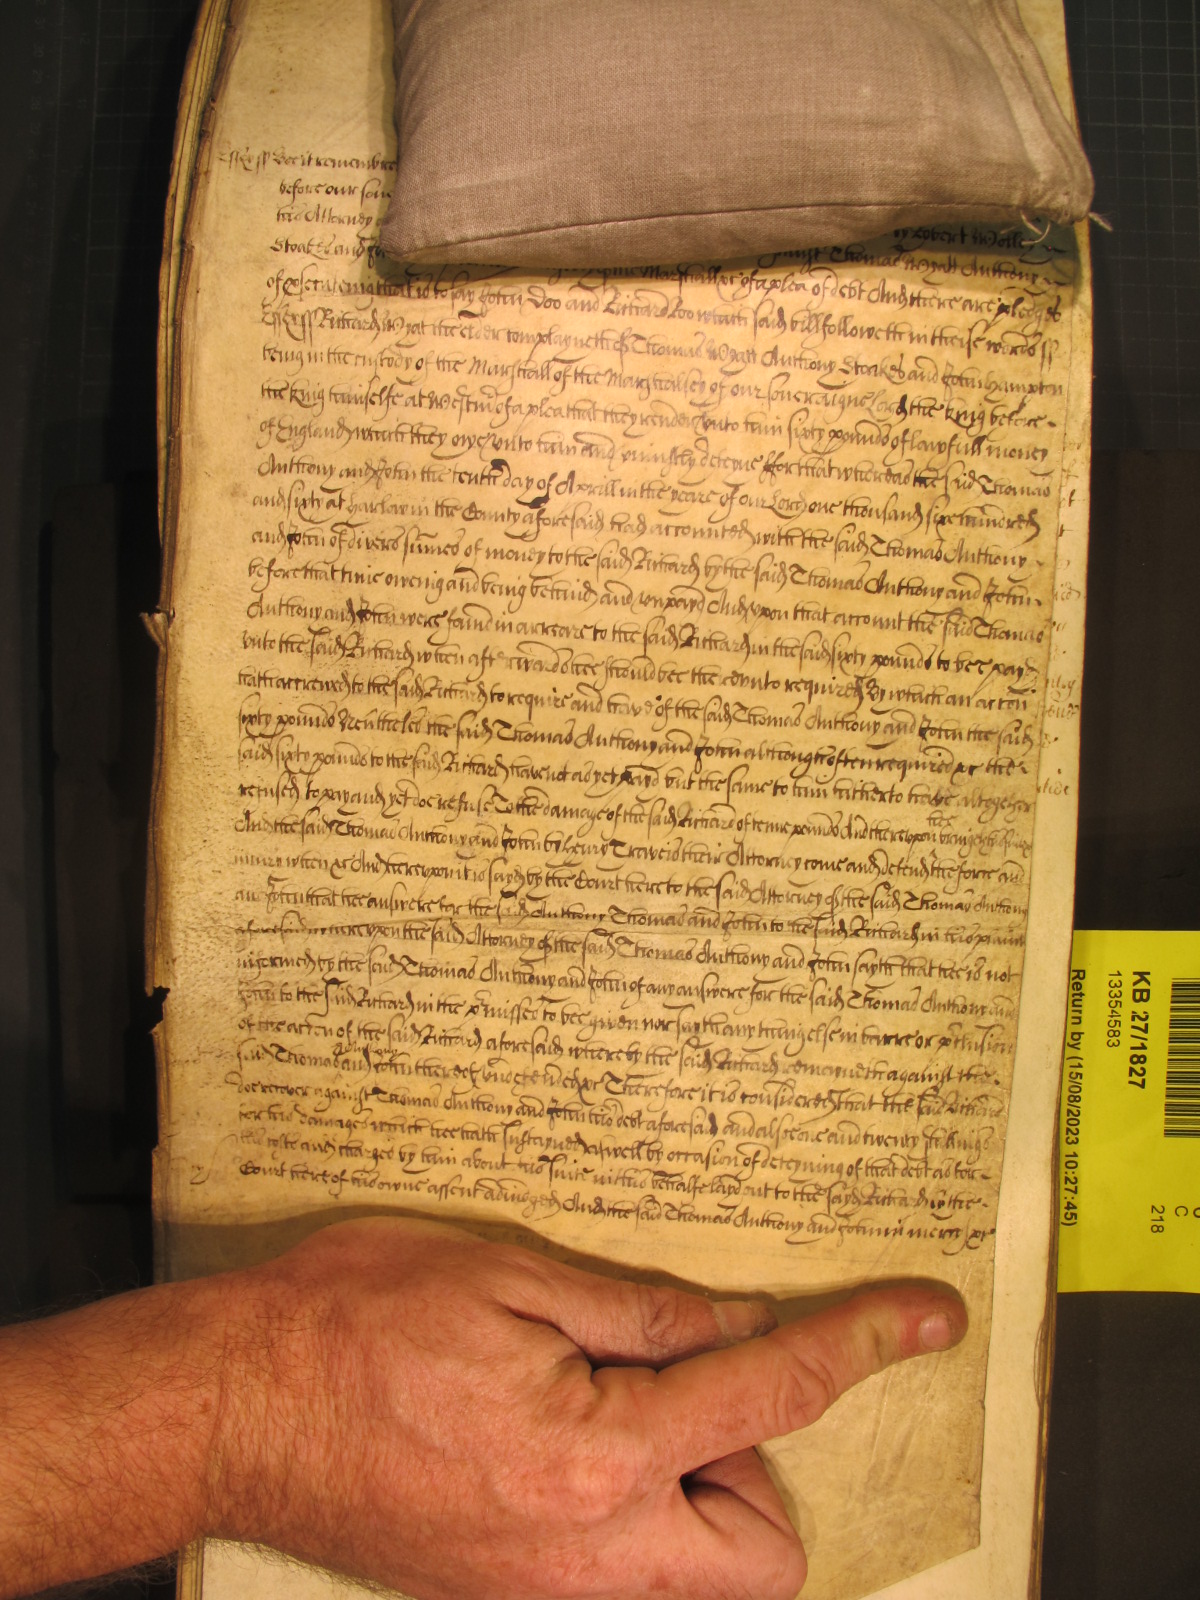 Essex ss Bee it remembre
before our sove
his Attorney
Stoakes and Jo
by Robert
against Thomas Wyatt Anthony
the Marshall &c of a plea of debt And there are pledges
of prosecuteing that is to say John Doo and Richard Roo which said bill followeth in theise words ss
Essex ss Richard Wyat the elder complayneth of Thomas Wyatt Anthony Stoakes and John Hampton
being in the custody of the Marshall of the Marshalsey of our soveraigne Lord the King before
the King himselfe at Westmr of a plea that they render unto him sixty pounds of lawfull money
of England which they owe unto him and uniustly deteyne ffor that whereas the said Thomas
Anthony and John the tenth day of Aprill in the yeare of our Lord one thousand sixe hundred
and sixty at Harlow in the County aforesaid had accounted with the said Thomas Anthony
and John of divers summes of money to the said Richard by the said Thomas Anthony and John
before that time oweing and being behind and unpayd And upon that account the said Thomas
Anthony and John were found in arreare to the said Richard in the said sixty pounds to bee payd
unto the said Richard when afterwards hee should bee thereunto required By which an accon
hath accrewed to the said Richard to require and have of the said Thomas Anthony and John the said
sixty pounds Neverthelesse the said Thomas Anthony and John although often required &c the
said sixty pounds to the said Richard have not as yet payd but the same to him hitherto have altogether
refused to pay and yet doe refuse To the damage of the said Richard of tenne pounds And thereupon hee bringeth his suite
And the said Thomas Anthony and John by Henry Travers their Attorney come and defend the force and
iniury when &c And hereupon it is sayd by the Court here to the said Attorney of the said Thomas Anthony
and John that hee answere for the said Anthony Thomas and John to the said Richard in his plaint
aforesaid whereupon the said Attorney of the said Thomas Anthony and John sayth that hee is not
informed by the said Thomas Anthony and John of any answere for the said Thomas Anthony and
John to the said Richard in the premisses to bee given nor sayth any thing else in barre or preclusion
of the accon of the said Richard aforesaid whereby the said Richard remayneth against the
said Thomas Anthony and John thereof undefended &c Therefore it is considered that the said Richard
doe recover against Thomas Anthony and John his debt aforesaid and alsoe one and twenty shillings
for his damages which hee hath susteyned aswell by occasion of deteyning of that debt as for
his costs and charges by him about his suite in this behalfe layd out to the sayd Richard by the
Court here of his owne assent adiudged And the said Thomas Anthony and John in mercy &c
KB 27/1827
13354583
Return by (15/08/2023 10:27:45)
C
218